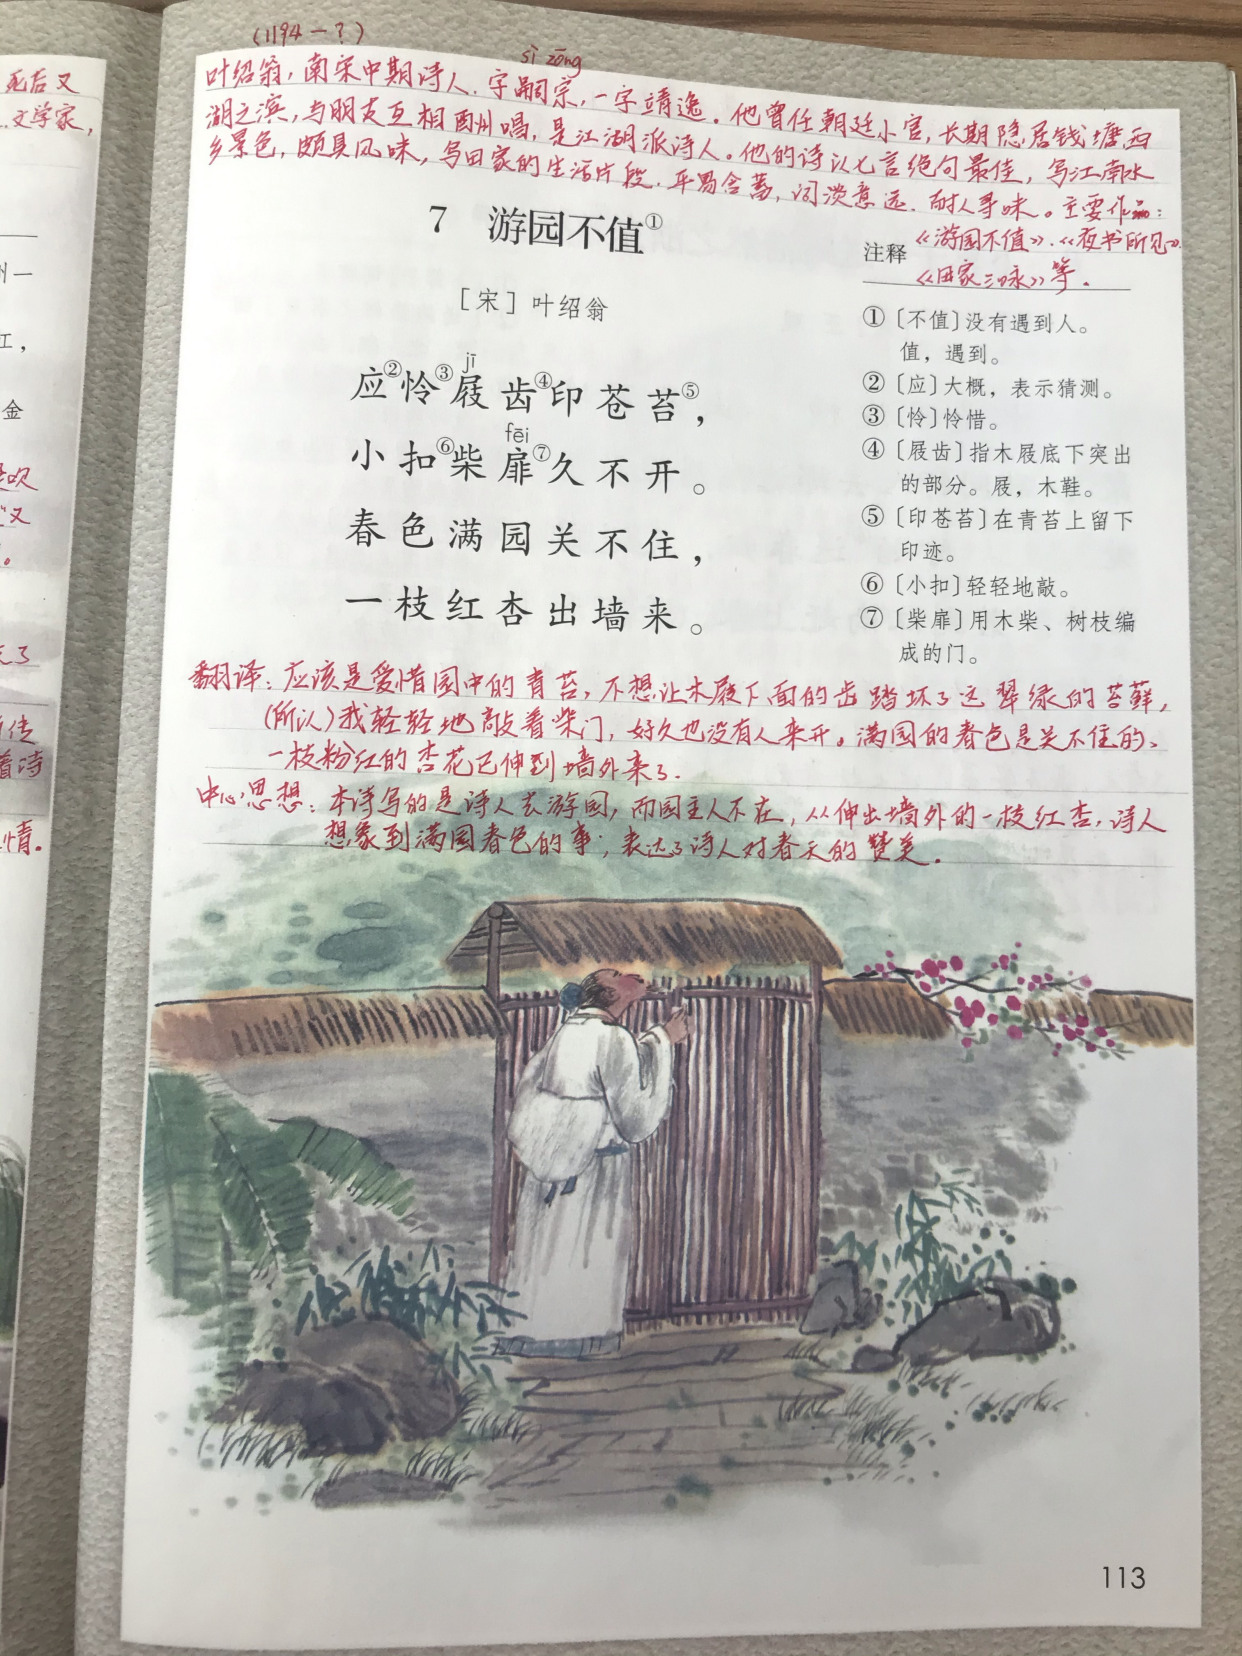 死后又
文学家,
州一
江，
金
又
。
着诗
情。
(1194－?)
sì zōng
叶绍翁,南宋中期诗人.字嗣宗,一字靖逸。他曾任朝廷小官,长期隐居钱塘西
湖之滨,与朋友互相酬唱,是江湖派诗人。他的诗以七言绝句最佳,写江南水
乡景色,颇具风味,写田家的生活片段.平易含蓄,词淡意远.耐人寻味。主要作品:
《游园不值》.《夜书所见》.
《田家三咏》等.
7 游园不值①
［宋］叶绍翁
jī
应②怜③屐齿④印苍苔⑤，
fēi
小扣⑥柴扉⑦久不开。
春色满园关不住，
一枝红杏出墙来。
注释
①〔不值〕没有遇到人。
值，遇到。
②〔应〕大概，表示猜测。
③〔怜〕怜惜。
④〔屐齿〕指木屐底下突出
的部分。屐，木鞋。
⑤〔印苍苔〕在青苔上留下
印迹。
⑥〔小扣〕轻轻地敲。
⑦〔柴扉〕用木柴、树枝编
成的门。
翻译:应该是爱惜园中的青苔,不想让木屐下面的齿踏坏了这翠绿的苔藓,
(所以)我轻轻地敲着柴门,好久也没有人来开。满园的春色是关不住的、
一枝粉红的杏花已伸到墙外来了.
中心思想:本诗写的是诗人去游园,而园主人不在,从伸出墙外的一枝红杏.诗人
想象到满园春色的事;表达了诗人对春天的赞美.
113